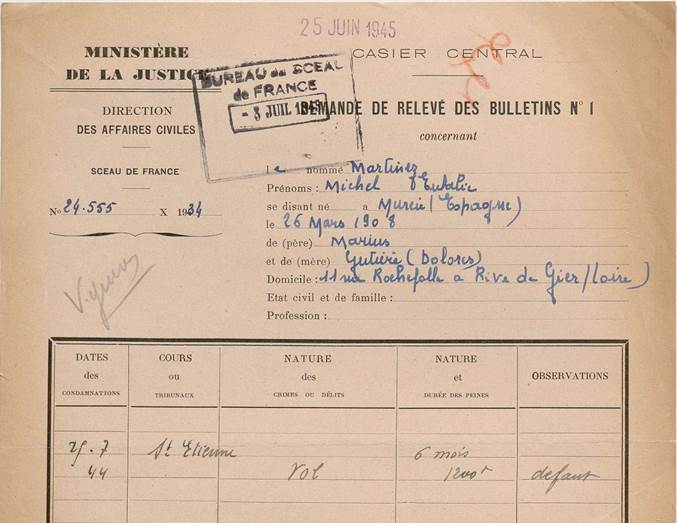 25 JUIN 1945
MINISTÈRE
DE LA JUSTICE
CASIER CENTRAL
BUREAU du SCEAU
de FRANCE
- 3 JUIL 1945
DEMANDE DE RELEVÉ DES BULLETINS N° 1
concernant
DIRECTION
DES AFFAIRES CIVILES
SCEAU DE FRANCE
N° 24.555 X 1934
le nommé Martinez
Prénoms : Michel d'Eulalie
se disant né a Murcie (Espagne)
le 26 Mars 1908
de (père) Marius
et de (mère) (Dolorès)
Domicile : 11 rue Rochefolle a Rive de Gier (Loire)
Etat civil et de famille :
Profession :
DATES
des
CONDAMNATIONS
COURS
ou
TRIBUNAUX
NATURE
des
CRIMES OU DÉLITS
NATURE
et
DURÉE DES PEINES
OBSERVATIONS
St Etienne
6 mois
44
Vol
1200f
defaut